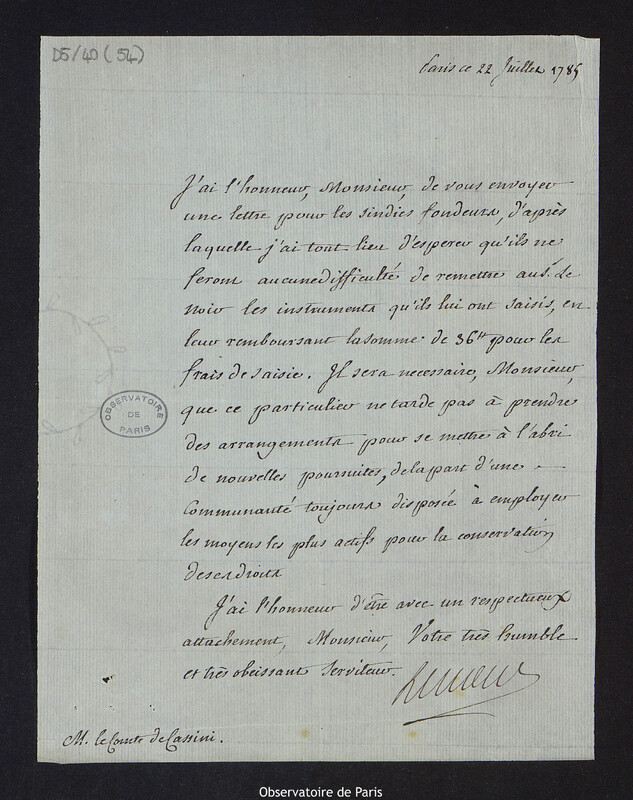 D5/40 (54)
Paris ce 22 Juillet 1785
J'ai l'honneur, Monsieur, de vous envoyer
une lettre pour les sindics fondeurs, d'après
laquelle j'ai tout lieu d'esperer qu'ils ne
feront aucune difficulté de remettre au S. Le
noir les instruments qu'ils lui ont saisis, en
leur remboursant la somme de 36ᵗᵗ pour les
frais de saisie. Il sera necessaire, Monsieur,
que ce particulier ne tarde pas à prendre
des arrangements pour se mettre à l'abri
de nouvelles poursuites, de la part d'une
Communauté toujours disposée à employer
les moyens les plus actifs pour la conservation
de ses droits
J'ai l'honneur d'être avec un respectueux
attachement, Monsieur, Votre très humble
et très obeissant Serviteur.
M. le Comte de Cassini.
OBSERVATOIRE
DE
PARIS
Observatoire de Paris